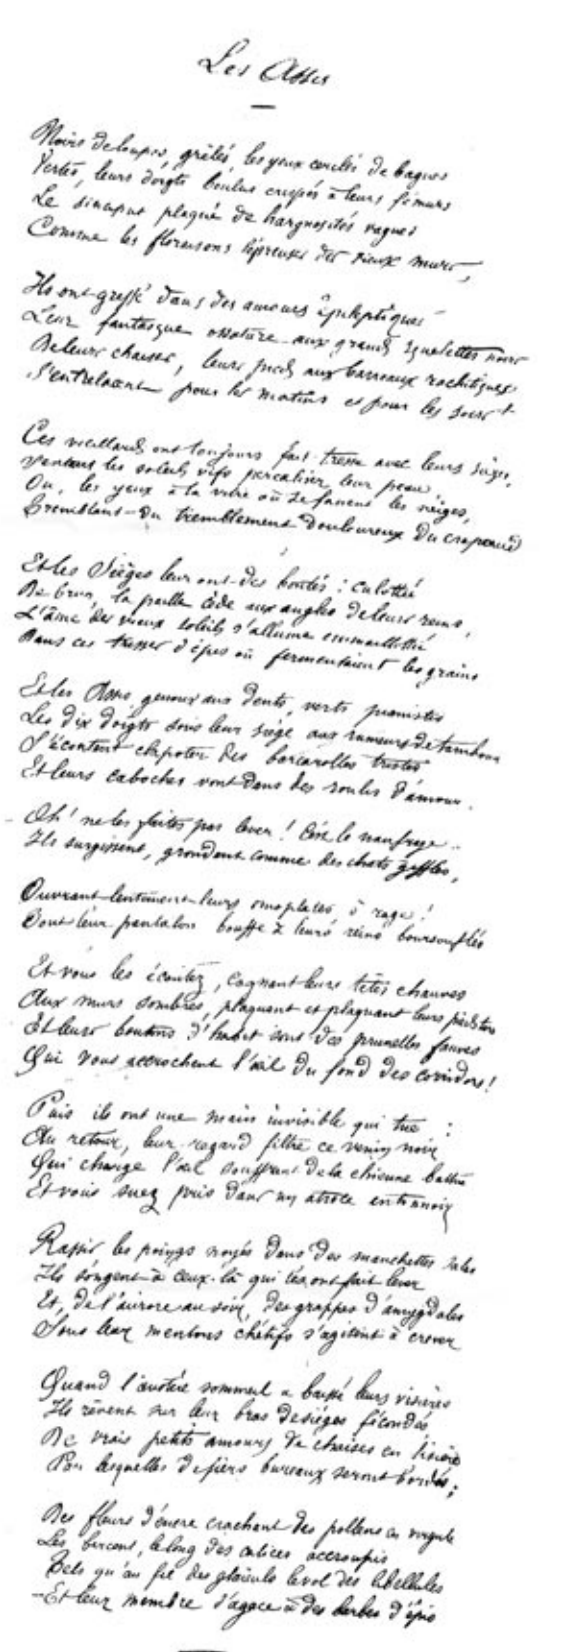 Les Assis
Noirs de loupes, grêlés, les yeux cerclés de bagues
Vertes, leurs doigts boulus crispés à leurs fémurs
Le sinciput plaqué de hargnosités vagues
Comme les floraisons lépreuses des vieux murs,
Ils ont greffé dans des amours épileptiques
Leur fantasque ossature aux grands squelettes noirs
De leurs chaises, leurs pieds aux barreaux rachitiques
S'entrelacent pour les matins et pour les soirs !
Ces vieillards ont toujours fait tresse avec leurs sièges,
Sentant les soleils vifs percaliser leur peau
Ou, les yeux à la vitre où se fanent les neiges,
Tremblant du tremblement douloureux du crapaud
Et les Sièges leur ont des bontés : culottée
De brun, la paille cède aux angles de leurs reins,
L'âme des vieux soleils s'allume emmaillottée
Dans ces tresses d'épis où fermentaient les grains
Et les Assis, genoux aux dents, verts pianistes
Les dix doigts sous leur siège aux rumeurs de tambour
S'écoutent clapoter des barcarolles tristes
Et leurs caboches vont dans des roulis d'amour.
Oh ! ne les faites pas lever ! C'est le naufrage..
Ils surgissent, grondant comme des chats giflés,
Ouvrant lentement leurs omoplates, ô rage !
Tout leur pantalon bouffe à leurs reins boursouflés
Et vous les écoutez, cognant leurs têtes chauves
Aux murs sombres, plaquant et plaquant leurs pieds tors
Et leurs boutons d'habit sont des prunelles fauves
Qui vous accrochent l'œil du fond des corridors !
Puis ils ont une main invisible qui tue :
Au retour, leur regard filtre ce venin noir
Qui charge l'œil souffrant de la chienne battue
Et vous suez pris dans un atroce entonnoir
Rassis, les poings noyés dans des manchettes sales
Ils songent à ceux-là qui les ont fait lever
Et, de l'aurore au soir, des grappes d'amygdales
Sous leurs mentons chétifs s'agitent à crever
Quand l'austère sommeil a baissé leurs visières
Ils rêvent sur leur bras de sièges fécondés
De vrais petits amours de chaises en lisière
Par lesquelles de fiers bureaux seront bordés ;
Des fleurs d'encre crachant des pollens en virgule
Les bercent, le long des calices accroupis
Tels qu'au fil des glaïeuls le vol des libellules
- Et leur membre s'agace à des barbes d'épis